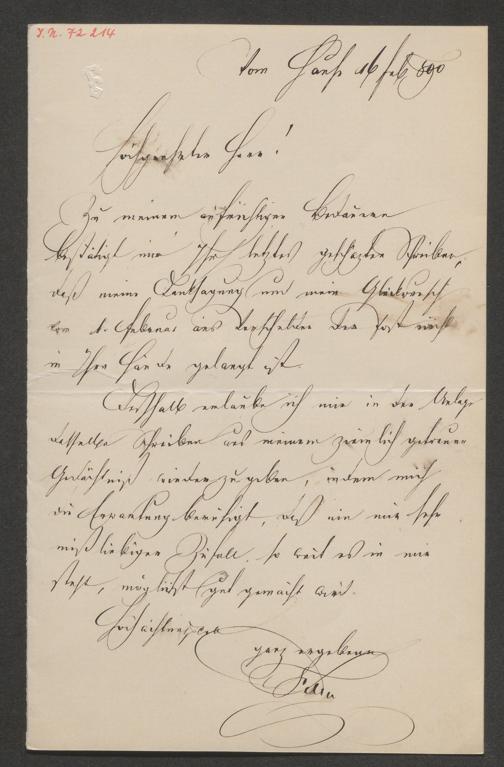 J.N. 72214
Vom Hause 16 Feb 890
Hochgeehrter Herr!
Zu meinem aufrichtigen Bedauern
bestätigt mir Ihr letztes geschätztes Schreiben,
daß meine Danksagung und mein Glückwunsch
vom 1. Februar aus Verschulden der Post nicht
in Ihre Hände gelangt ist.
Deßhalb erlaube ich mir in der Anlage
dasselbe Schreiben aus meinem ziemlich getreuen
Gedächtniß wiederzugeben, indem mich
die Erwartung beruhigt, daß ein mir sehr
mißliebiger Zufall, so weit es in mir
steht, möglichst gut gemacht wird.
Hochachtungsvoll
ganz ergebener